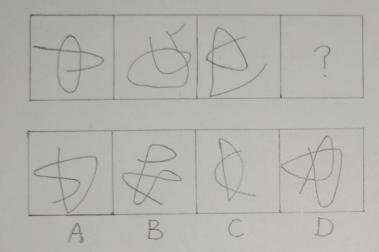 ?
A B C D